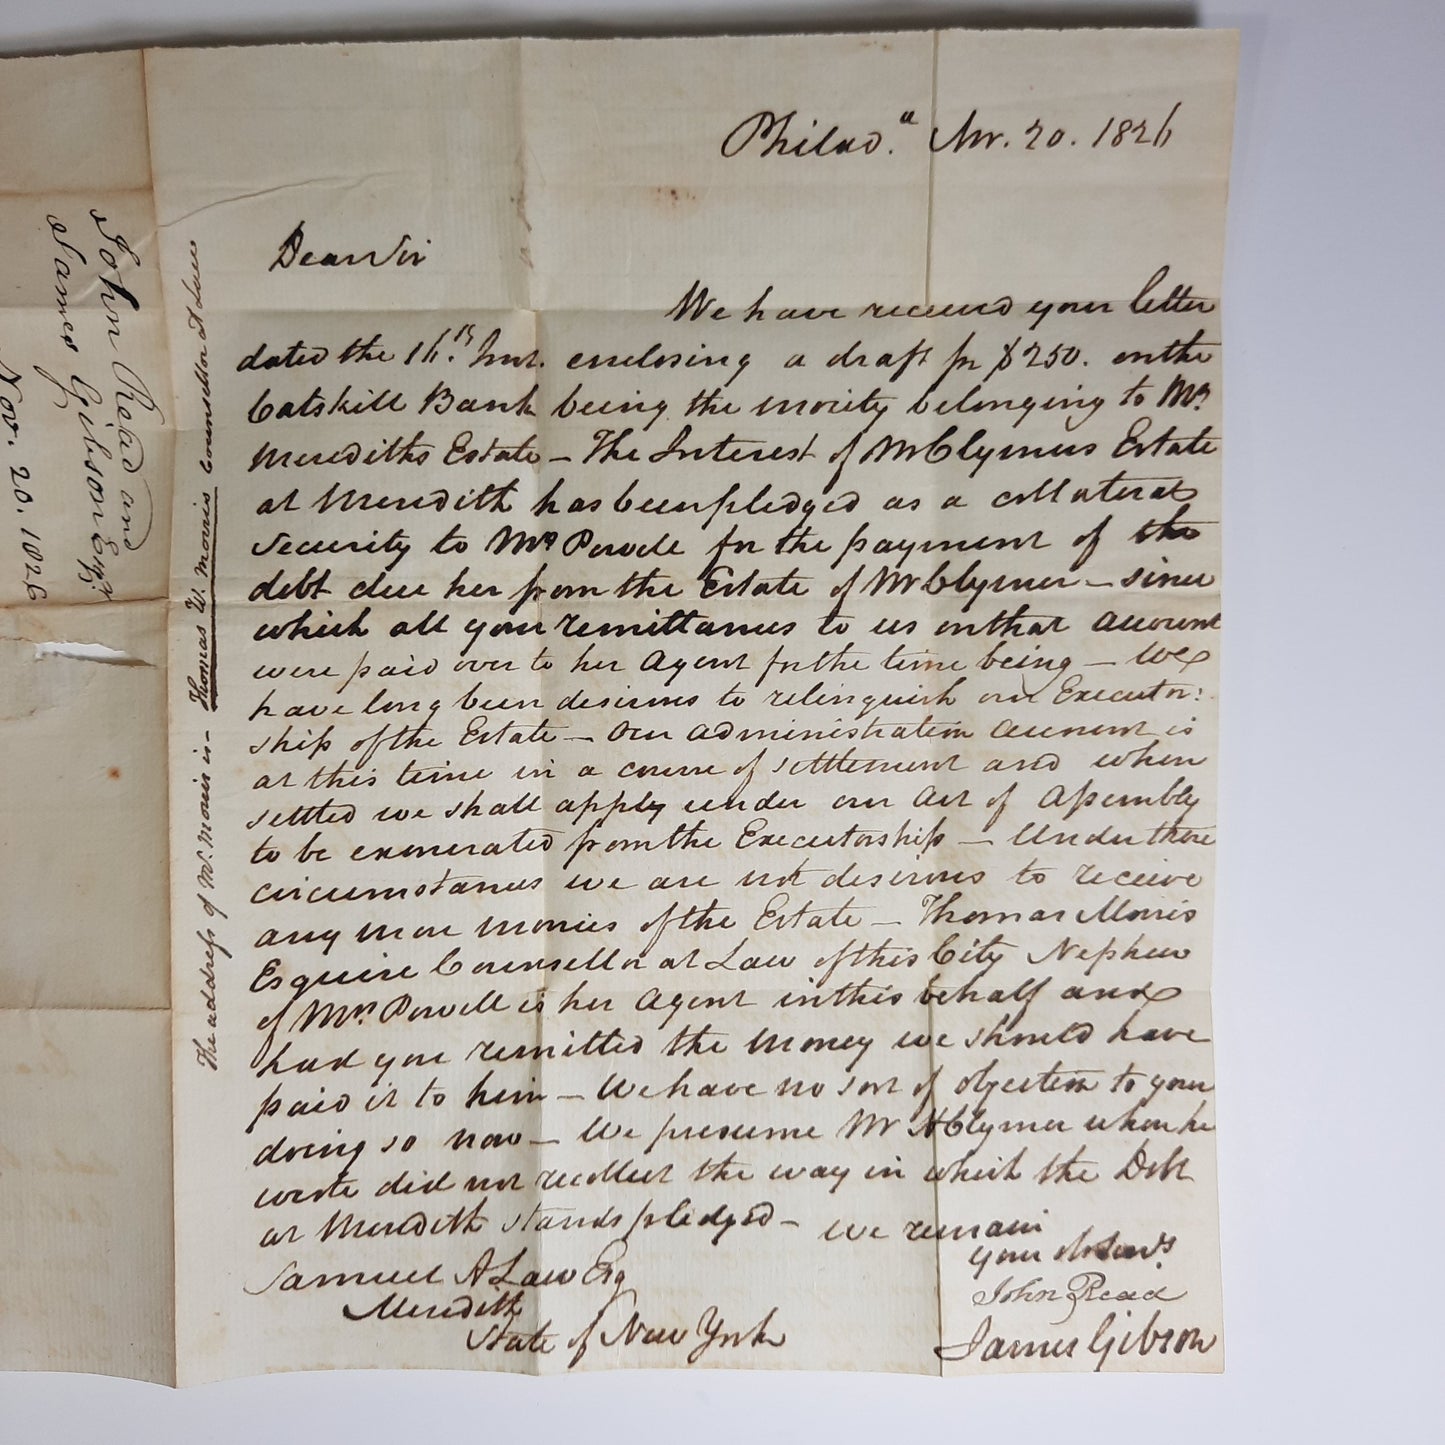 Philad.ª Nov. 20. 1826
Dear Sir
We have received your letter
dated the 16.th Inst. enclosing a draft for $250. on the
Catskill Bank being the moiety belonging to Mr.
Merediths Estate – The Interest of Mr Clymers Estate
at Meredith has been pledged as a collateral
security to Mrs Powell for the payment of the
debt due her from the Estate of Mr Clymer – since
which all your remittances to us on that account
were paid over to her Agent for the time being – We
have long been desirous to relinquish our Executor:
ship of the Estate – Our administration account is
at this time in a course of settlement and when
settled we shall apply under our Act of Assembly
to be exonerated from the Executorship – Under these
circumstances we are not desirous to receive
any more monies of the Estate – Thomas Morris
Esquire Counsellor at Law of this City Nephew
of Mrs. Powell is her Agent in this behalf and
had you remitted the money we should have
paid it to him – We have no sort of objection to your
doing so now – We presume Mr H Clymer when he
wrote did not recollect the way in which the Debt
at Meredith stands pledged – we remain
your obt Servts.
John Read
James Gibson
Samuel A Law Esq
Meredith
State of New York
The address of Mr. Morris is – Thomas W. Morris Counsellor at Law
John Read and
James Gibson Esqrs.
Nov. 20. 1826